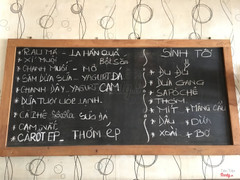 RAU MÁ - LA HÁN QUẢ
XÍ MUỘI
CHANH MUỐI - MƠ
SÂM DỨA SỮA - YAGURT ĐÁ
CHANH DÂY - YAGURT CAM
DỪA TƯƠI
CAM VẮT
CAROT ÉP - THƠM ÉP
SINH TỐ
+ ĐU ĐỦ
+ DƯA GANG
+ SAPÔCHÊ
+ THƠM
+ MÍT + MÃNG CẦU
+ DÂU + DỪA
+ XOÀI + BƠ